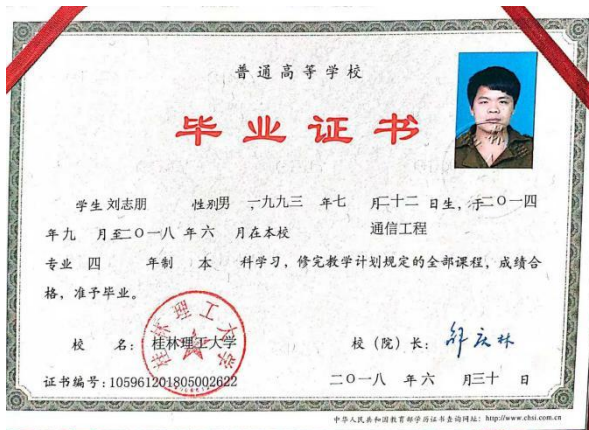 普通高等学校
毕业证书
学生 刘志朋 性别男 ,一九九三 年七 月二十二 日生，于二〇一四
年九 月至二〇一八 年六 月在本校 通信工程
专业 四 年制 本 科学习，修完教学计划规定的全部课程，成绩合
格，准予毕业。
桂林理工大学
校 名：桂林理工大学 校（院）长：
证书编号：105961201805002622 二〇一八 年六 月三十 日
中华人民共和国教育部学历证书查询网址：http://www.chsi.com.cn